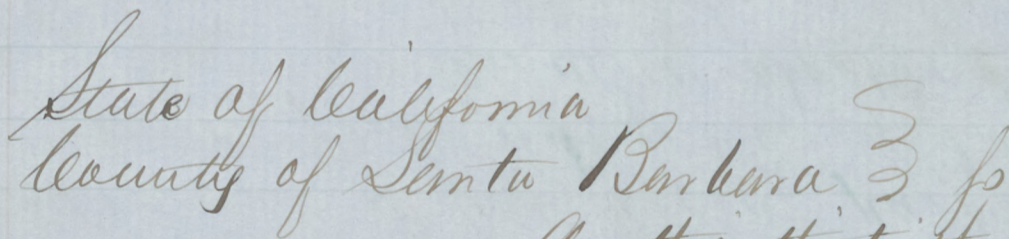 State of California
County of Santa Barbara } ss